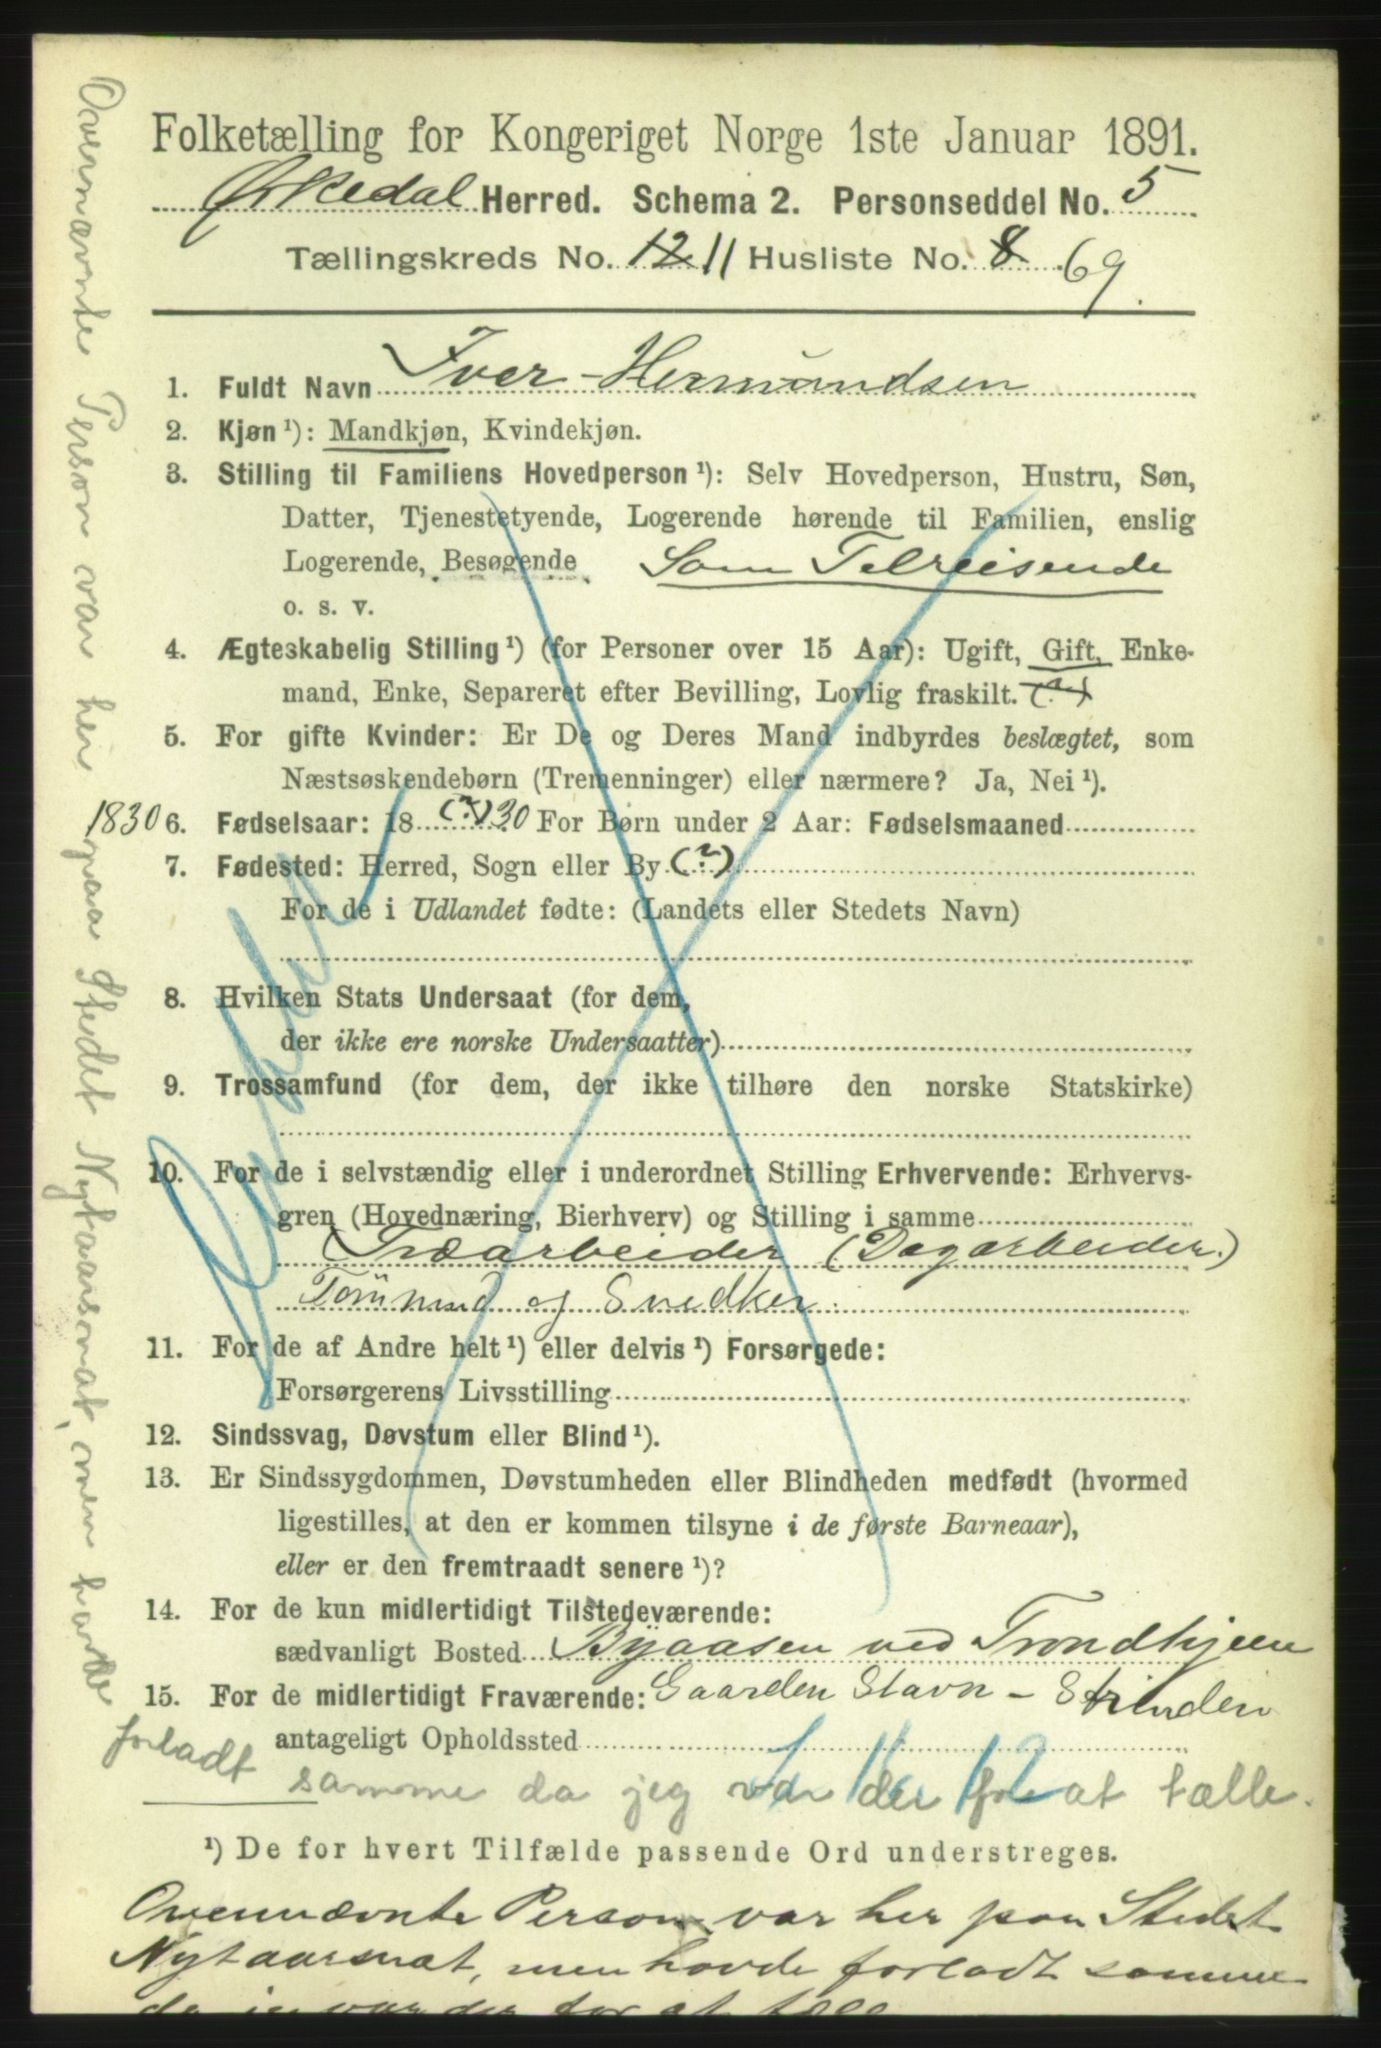 Folketælling for Kongeriget Norge 1ste Januar 1891.
Ørkedal Herred. Schema 2. Personseddel No. 5
Tællingskreds No. 12 11 Husliste No. 8 69.
1. Fuldt Navn Iver Hermundsen
2. Kjøn ¹): Mandkjøn, Kvindekjøn.
3. Stilling til Familiens Hovedperson ¹): Selv Hovedperson, Hustru, Søn,
Datter, Tjenestetyende, Logerende hørende til Familien, enslig
Logerende, Besøgende Som Tilreisende
o. s. v.
4. Ægteskabelig Stilling ¹) (for Personer over 15 Aar): Ugift, Gift, Enke-
mand, Enke, Separeret efter Bevilling, Lovlig fraskilt. (?)
5. For gifte Kvinder: Er De og Deres Mand indbyrdes beslægtet, som
Næstsøskendebørn (Tremenninger) eller nærmere? Ja, Nei ¹).
1830 6. Fødselsaar: 18 (?) 30 For Børn under 2 Aar: Fødselsmaaned
7. Fødested: Herred, Sogn eller By (?)
For de i Udlandet fødte: (Landets eller Stedets Navn)
8. Hvilken Stats Undersaat (for dem,
der ikke ere norske Undersaatter)
9. Trossamfund (for dem, der ikke tilhøre den norske Statskirke)
10. For de i selvstændig eller i underordnet Stilling Erhvervende: Erhvervs-
gren (Hovednæring, Bierhverv) og Stilling i samme
Træarbeider (Dagarbeider.)
Tømmermd og Snedker
11. For de af Andre helt ¹) eller delvis ¹) Forsørgede:
Forsørgerens Livsstilling
12. Sindssvag, Døvstum eller Blind ¹).
13. Er Sindssygdommen, Døvstumheden eller Blindheden medfødt (hvormed
ligestilles, at den er kommen tilsyne i de første Barneaar),
eller er den fremtraadt senere ¹)?
14. For de kun midlertidigt Tilstedeværende:
sædvanligt Bosted Byaasen ved Trondhjem
15. For de midlertidigt Fraværende: Gaarden Stavn - Strinden
antageligt Opholdssted
Ovennævnte Person var her paa Stedet Nytaarsnat, men havde
forladt
samme da jeg var der for at tælle.
¹) De for hvert Tilfælde passende Ord understreges.
Ovennævnte Person var her paa Stedet
Nytaarsnat, men havde forladt samme
da jeg var der for at tælle